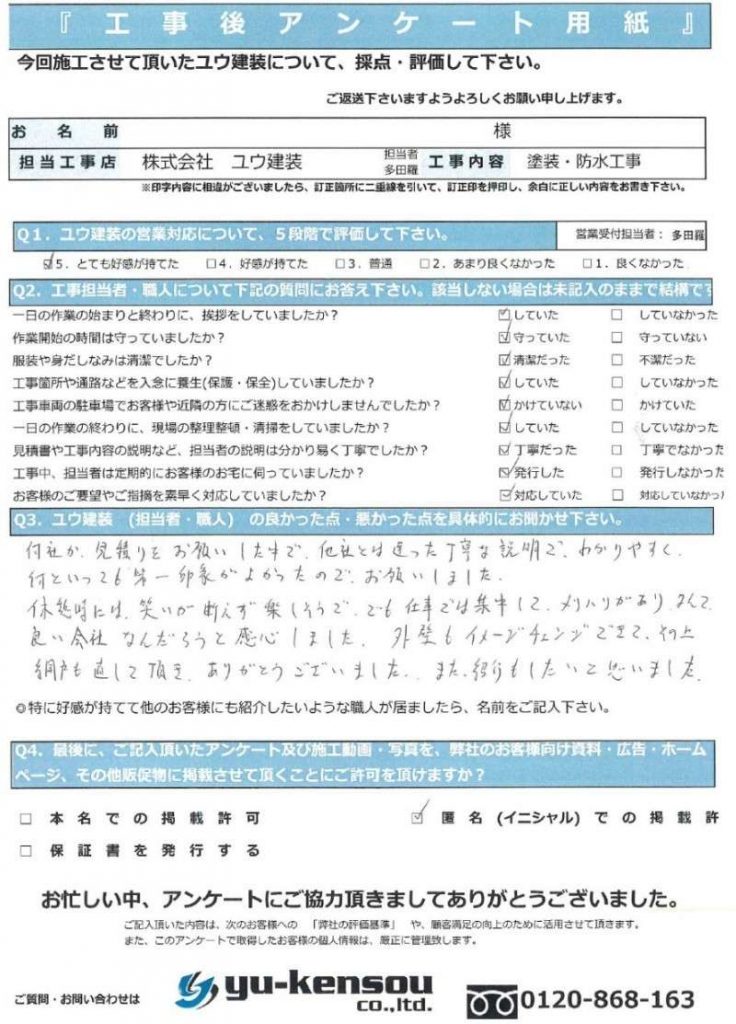 『工事後アンケート用紙』
今回施工させて頂いたユウ建装について、採点・評価して下さい。
ご返送下さいますようよろしくお願い申し上げます。
お名前 様
担当工事店 株式会社 ユウ建装 担当者 多田羅 工事内容 塗装・防水工事
※印字内容に相違がございましたら、訂正箇所に二重線を引いて、訂正印を押印し、余白に正しい内容をお書き下さい。
Q1．ユウ建装の営業対応について、5段階で評価して下さい。 営業受付担当者：多田羅
☑5．とても好感が持てた □4．好感が持てた □3．普通 □2．あまり良くなかった □1．良くなかった
Q2．工事担当者・職人について下記の質問にお答え下さい。該当しない場合は未記入のままで結構です
一日の作業の始まりと終わりに、挨拶をしていましたか？ ☑していた □していなかった
作業開始の時間は守っていましたか？ ☑守っていた □守っていない
服装や身だしなみは清潔でしたか？ ☑清潔だった □不潔だった
工事箇所や通路などを入念に養生(保護・保全)していましたか？ ☑していた □していなかった
工事車両の駐車場でお客様や近隣の方にご迷惑をおかけしませんでしたか？ ☑かけていない □かけていた
一日の作業の終わりに、現場の整理整頓・清掃をしていましたか？ ☑していた □していなかった
見積書や工事内容の説明など、担当者の説明は分かり易く丁寧でしたか？ ☑丁寧だった □丁寧でなかった
工事中、担当者は定期的にお客様のお宅に伺っていましたか？ ☑発行した □発行しなかった
お客様のご要望やご指摘を素早く対応していましたか？ ☑対応していた □対応していなかっ
Q3．ユウ建装 (担当者・職人) の良かった点・悪かった点を具体的にお聞かせ下さい。
何社か、見積りをお願いした中で、他社とは違った丁寧な説明で、わかりやすく、
何といっても第一印象がよかったので、お願いしました。
休憩時には、笑いが断えず楽しそうで、でも仕事では集中して、メリハリがあり、なんて
良い会社なんだろうと感心しました。外壁もイメージチェンジできて、その上
網戸も直して頂き、ありがとうございました。また、紹介もしたいと思いました。
◎特に好感が持てて他のお客様にも紹介したいような職人が居ましたら、名前をご記入下さい。
Q4．最後に、ご記入頂いたアンケート及び施工動画・写真を、弊社のお客様向け資料・広告・ホーム
ページ、その他販促物に掲載させて頂くことにご許可を頂けますか？
□ 本名での掲載許可 ☑ 匿名(イニシャル)での掲載許
□ 保証書を発行する
お忙しい中、アンケートにご協力頂きましてありがとうございました。
ご記入頂いた内容は、次のお客様への 「弊社の評価基準」 や、顧客満足の向上のために活用させて頂きます。
また、このアンケートで取得したお客様の個人情報は、厳正に管理致します。
ご質問・お問い合わせは yu-kensou co.,ltd. 0120-868-163